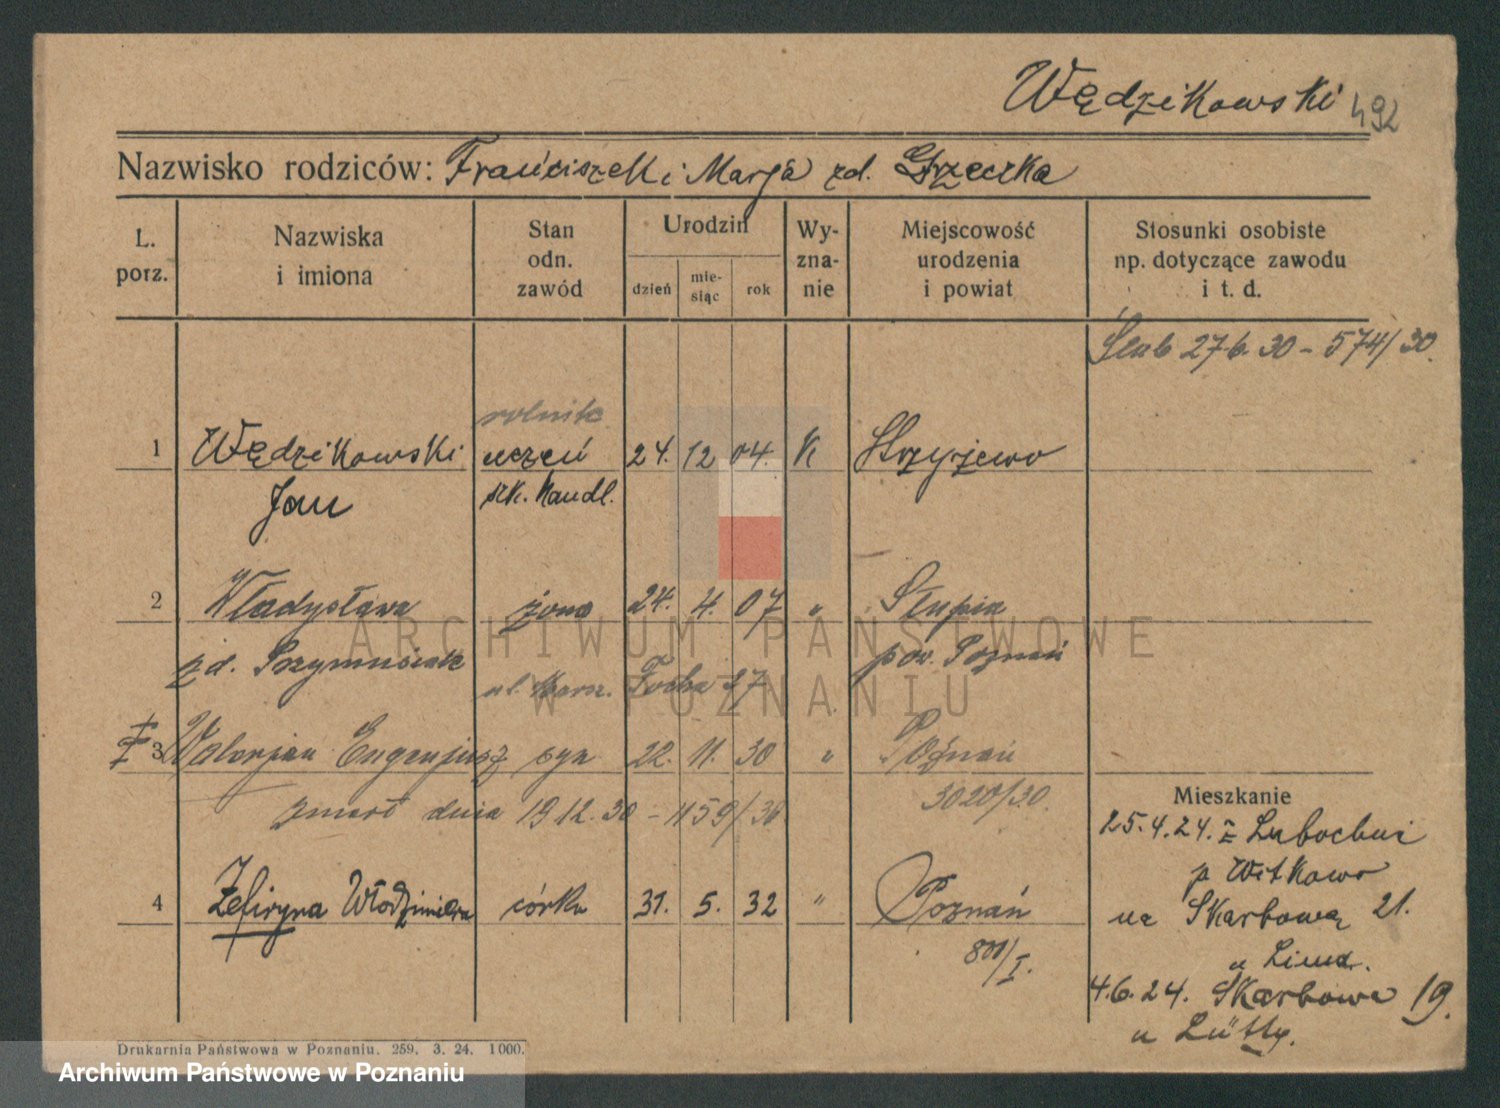 Wędzikowski 492
Nazwisko rodziców: Franciszek i Marja zd. Grzeczka
L. porz.
Nazwiska i imiona
Stan odn. zawód
Urodzin
dzień
mie-siąc
rok
Wy-zna-nie
Miejscowość urodzenia i powiat
Stosunki osobiste np. dotyczące zawodu i t. d.
Ślub 27.6.30 - 574/30.
rolnik
1 Wędzikowski uczeń 24. 12 04. k Strzyżewo
Jan szk. Handl.
2 Władysława żona 24. 4. 07 „ Słupia
zd. Szymusiak pow. Poznań
ul. Marsz. Focha 27
3 Walerjan Eugenjusz syn 22. 11. 30 „ Poznań
3020/30.
zmarł dnia 19.12.30 - 1159/30
Mieszkanie
25.4.24. z Lubochni
p Witkowo
4 Zefiryna Włodzimiera córka 31. 5. 32 „ Poznań
na Skarbową 21.
800/I.
u
4.6.24. Skarbowa 19.
u
Drukarnia Państwowa w Poznaniu. 259. 3. 24. 1000.
ARCHIWUM PAŃSTWOWE
W POZNANIU
Archiwum Państwowe w Poznaniu